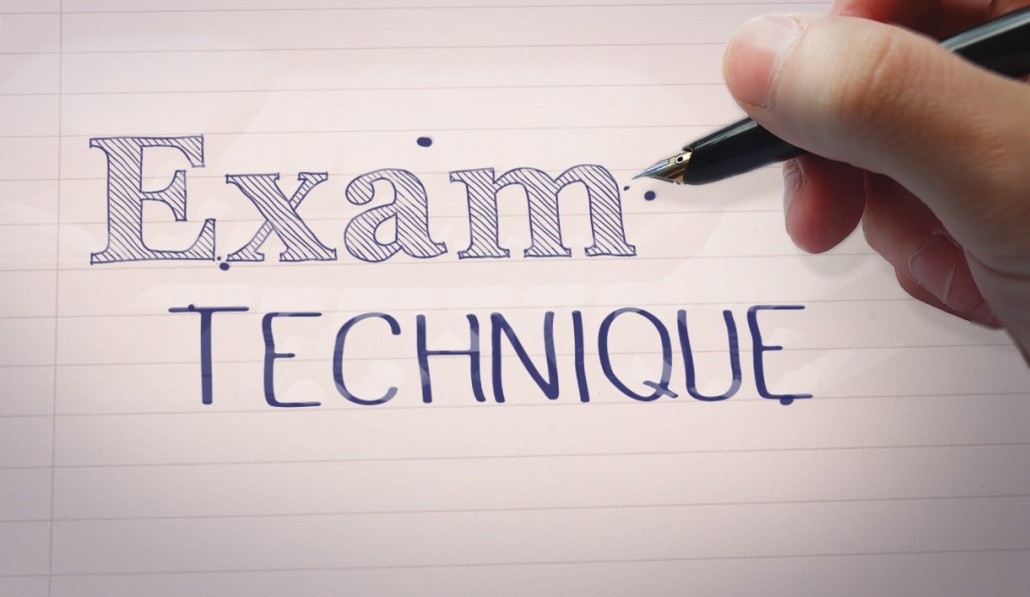 Exam
TECHNIQUE